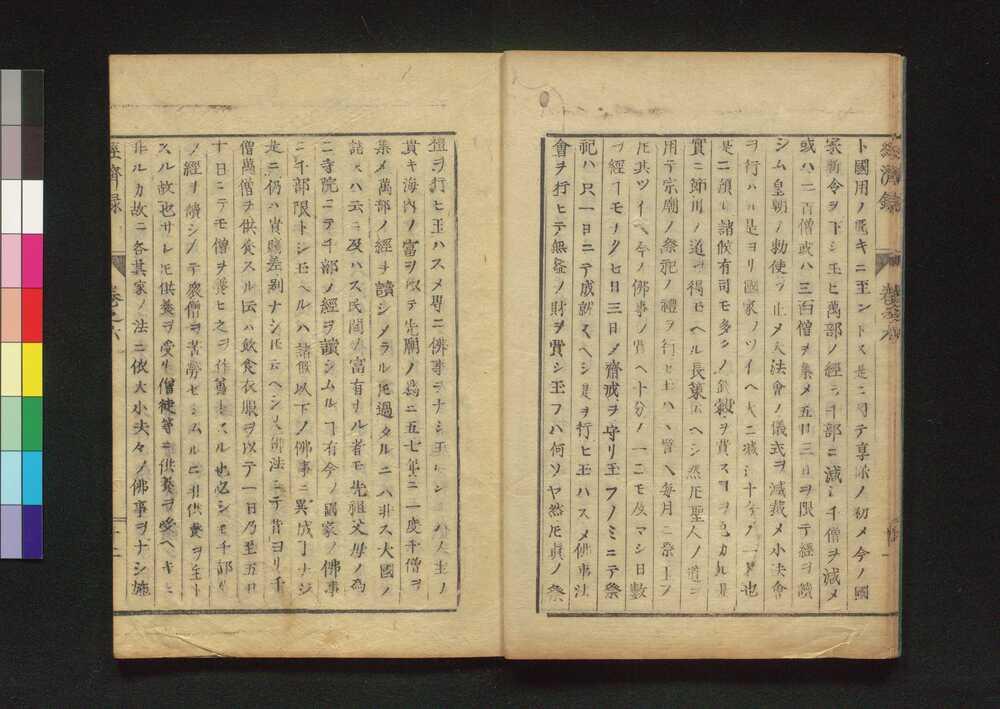 經濟録
卷之六
ト國用ノ匱キニ至ントス是ニ因テ享保ノ初メ今ノ國
家新令ヲ下シ玉ヒ萬部ノ經ヲ千部ニ減シ千僧ヲ減メ
或ハ二百僧或ハ三百僧ヲ集メ五日三日ヲ限テ經ヲ讀
シム皇朝ノ勅使ヲ止メ大法會ノ儀式ヲ減裁メ小法會
ヲ行ハル是ヨリ國家ノツイヘ大ニ減シ十分ノ一ヨ也
是ニ順テ諸候有司モ多クノ錢穀ヲ費スヿヲ免カル是
實ニ節用ノ道ヲ得玉ヘル長策云ヘシ然𪜈聖人ノ道ヲ
用テ宗廟ノ祭祀ノ禮ヲ行ヒ玉ハヽ譬ヘ毎月ニ祭玉フ
𪜈其ツイヘ今ノ佛事ノ費ヘ十分ノ一ニモ及マシ日數
ヲ經ヿモナクヒ日三日メ齋戒ヲ守リ玉フノミニテ祭
祀ハ只一日ニテ成就スヘシ是ヲ行ヒ玉ハスメ佛事法
會ヲ行ヒテ無益ノ財ヲ費シ玉フハ何ソヤ然𪜈眞ノ祭
禮ヲ行ヒ玉ハスメ專ニ佛事ヲナシ玉 シ ハ人主ノ
貴キ海内ノ富ヲ以テ先廟ノ爲ニ五七年ニ一度千僧ヲ
集メ萬部ノ經ヲ讀シメラル𪜈過タルニハ非ス大國ノ
諸 ハ云ニ及ハス民間ノ富有ナル者モ先祖父母ノ爲
ニ寺院ニテ千部ノ經ヲ讀シムルヿ有今ノ國家ノ佛事
ニ千部限トシ玉ヘルハ諸候以下ノ佛事ニ異成丁ナシ
是ニ仍ハ貴賤差別ナシ𪜈云ヘシ大佛法ニテ昔ヨリ千
僧萬僧ヲ供養スル云ハ飲食衣服ヲ以テ一日乃至五日
十日ニテモ僧ヲ養ヒ之ヲ作善トスル也必シモ千部
ノ經ヲ讀シメテ衆僧ヲ苦勞セシムルニ非供養ヲ主ト
スル故也サレ𪜈供養ヲ受ル僧徒等ニ供養ヲ受ヘキニ
非ルカ故ニ各其家ノ法ニ依大小夫々ノ佛事ヲナシ施
經濟録
卷之六
十二